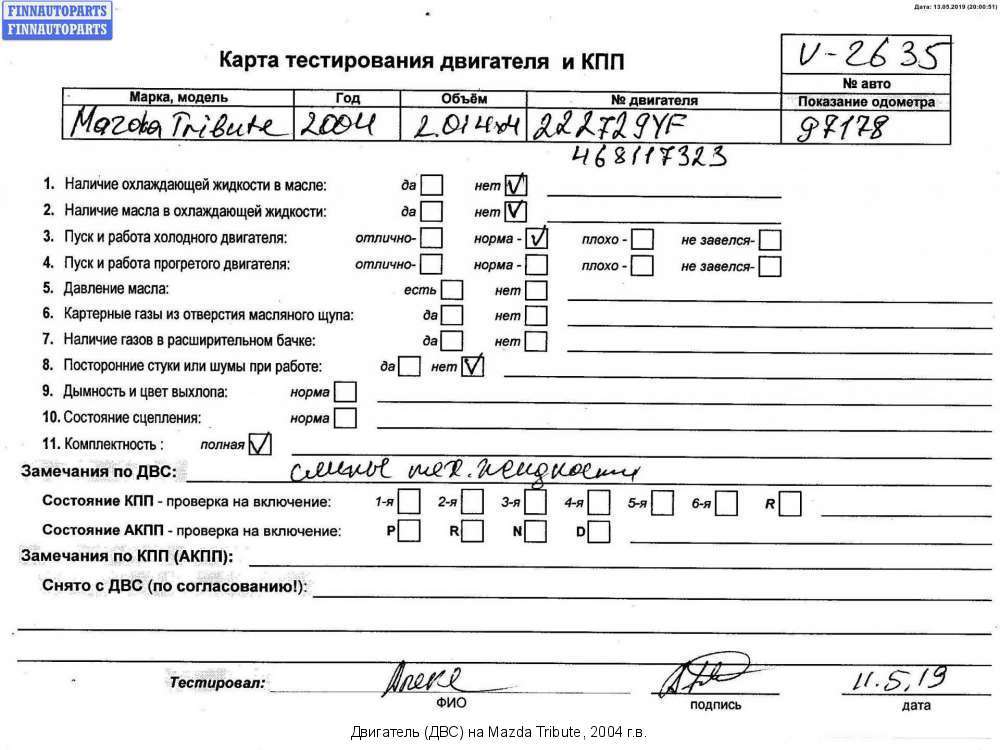 FINNAUTOPARTS
FINNAUTOPARTS
Дата: 13.05.2019 (20:00:51)
Карта тестирования двигателя и КПП
V-2635
№ авто
Марка, модель Год Объём № двигателя Показание одометра
Mazda Tribute 2004 2.0i 4x4 222729YF 97178
468117323
1. Наличие охлаждающей жидкости в масле: да нет
2. Наличие масла в охлаждающей жидкости: да нет
3. Пуск и работа холодного двигателя: отлично- норма - плохо - не завелся-
4. Пуск и работа прогретого двигателя: отлично- норма - плохо - не завелся-
5. Давление масла: есть нет
6. Картерные газы из отверстия масляного щупа: да нет
7. Наличие газов в расширительном бачке: да нет
8. Посторонние стуки или шумы при работе: да нет
9. Дымность и цвет выхлопа: норма
10. Состояние сцепления: норма
11. Комплектность : полная
Замечания по ДВС: слиты тех. жидкости
Состояние КПП - проверка на включение: 1-я 2-я 3-я 4-я 5-я 6-я R
Состояние АКПП - проверка на включение: P R N D
Замечания по КПП (АКПП):
Снято с ДВС (по согласованию!):
Тестировал: 11.5.19
ФИО подпись дата
Двигатель (ДВС) на Mazda Tribute, 2004 г.в.